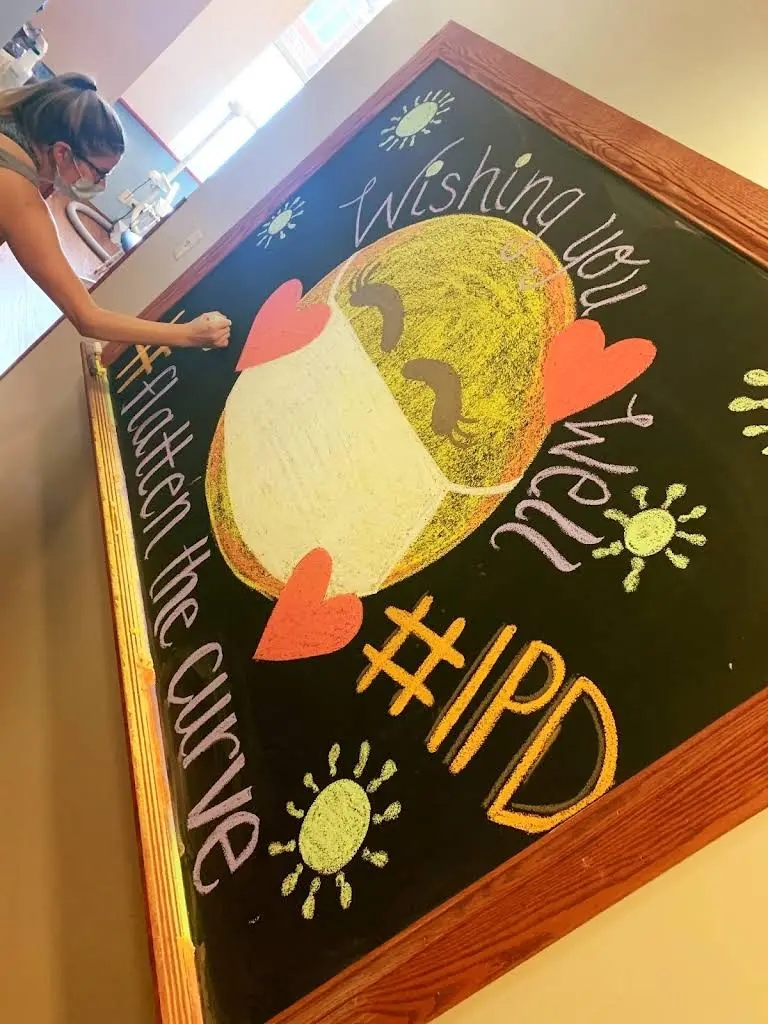 Wishing you
Well
#IPD
#flatten the curve